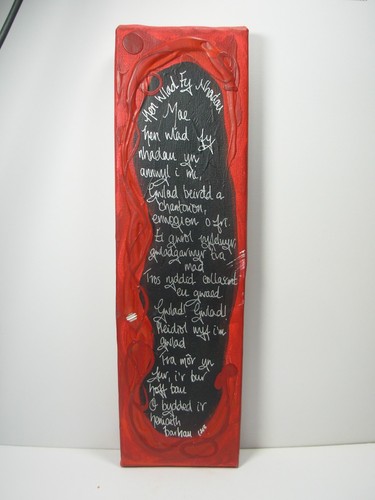 Hen Wlad Fy Nhadau
Mae
hen wlad fy
nhadau yn
annwyl i mi,
Gwlad beirdd a
chantorion,
enwogion o fri.
Ei gwrol ryfelwyr,
gwladgarwyr tra
mad
Tros ryddid collasant
eu gwaed
Gwlad! Gwlad!
Pleidiol wyf i'm
gwlad
Tra môr yn
fur, i'r bur
hoff bau
O bydded i'r
heniaith
barhau